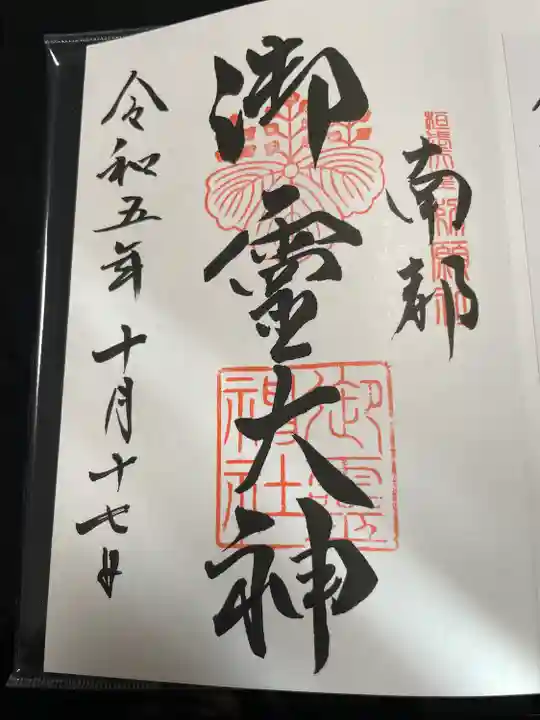 南都
御靈大神
御靈神社
令和五年十月十七日